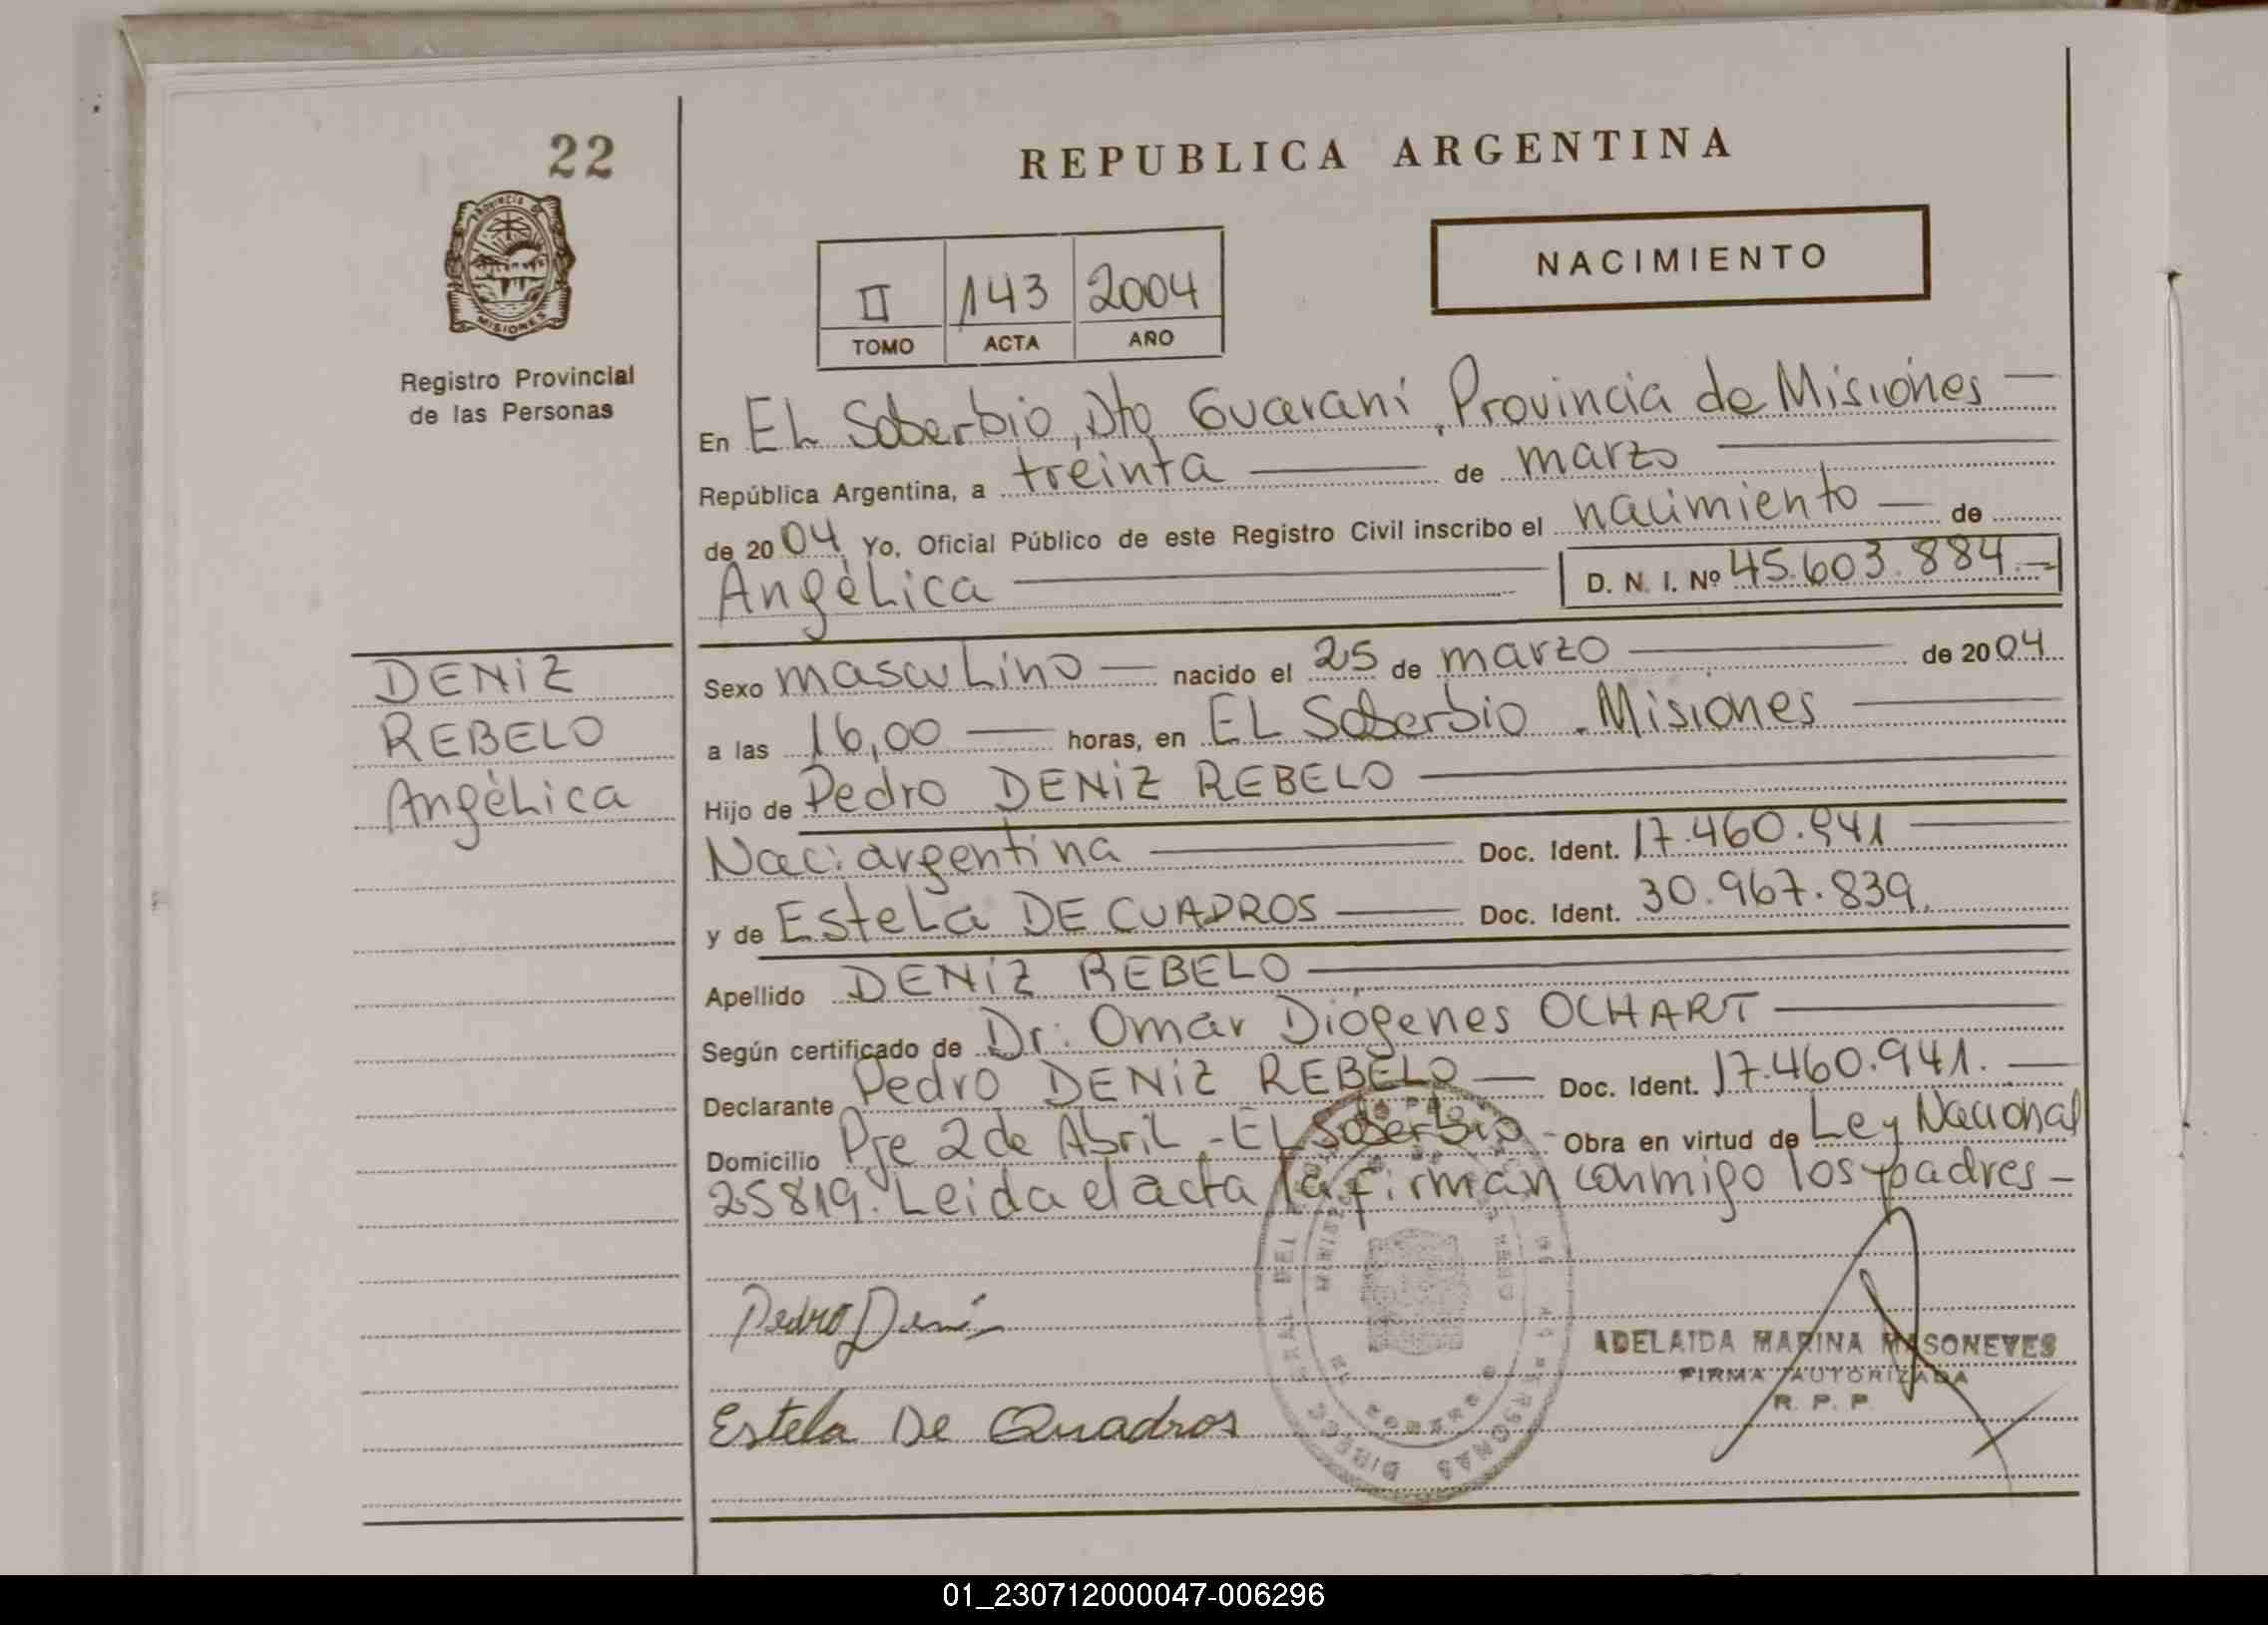 22
REPUBLICA ARGENTINA
PROVINCIA DE
MISIONES
Registro Provincial
de las Personas
NACIMIENTO
II 143 2004
TOMO ACTA AÑO
En EL Soberbio, Dto Guaraní, Provincia de Misiones
República Argentina, a treinta de marzo
de 2004 Yo, Oficial Público de este Registro Civil inscribo el nacimiento de
Angélica D. N. I. Nº 45.603.884.-
DENIZ
REBELO
Angélica
Sexo masculino nacido el 25 de marzo de 2004
a las 16,00 horas, en EL Soberbio - Misiones
Hijo de Pedro DENIZ REBELO
Nac: argentina Doc. Ident. 17.460.941
y de Estela DE CUADROS Doc. Ident. 30.967.839.
Apellido DENIZ REBELO
Según certificado de Dr: Omar Diógenes OCHART
Declarante Pedro DENIZ REBELO Doc. Ident. 17.460.941.
Domicilio Pje 2 de Abril - EL Soberbio - Obra en virtud de Ley Nacional
25819. Leida el acta la firman conmigo los padres -
Pedro Deniz
ADELAIDA MARINA MASONEVES
FIRMA AUTORIZADA
R. P. P.
Estela De Quadros
01_230712000047-006296